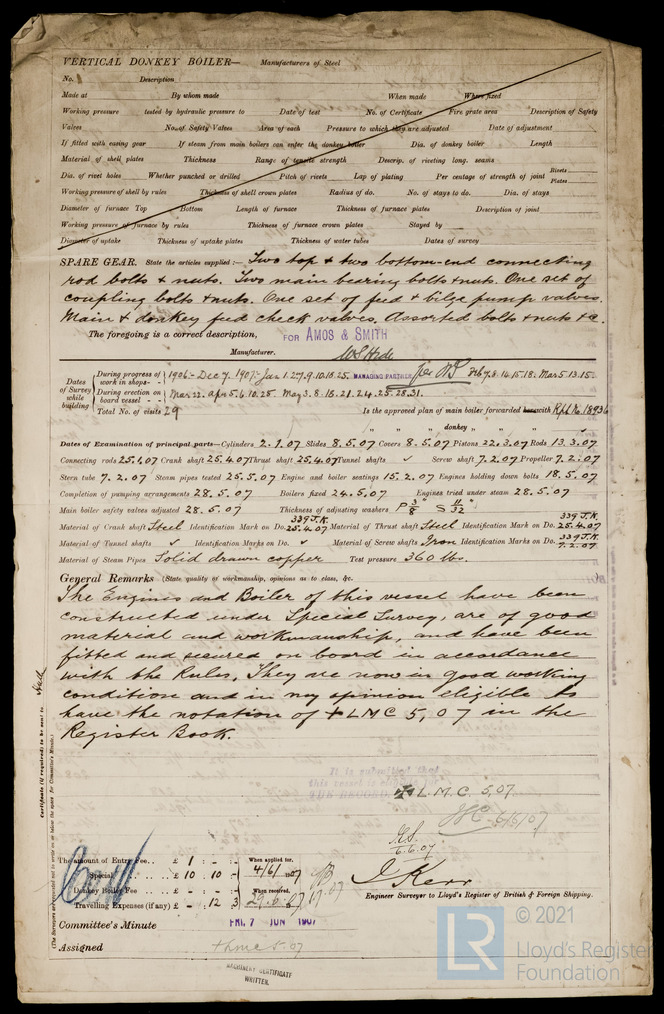 VERTICAL DONKEY BOILER— Manufacturers of Steel
No. Description
Made at By whom made When made Where fixed
Working pressure tested by hydraulic pressure to Date of test No. of Certificate Fire grate area Description of Safety
Valves No. of Safety Valves Area of each Pressure to which they are adjusted Date of adjustment
If fitted with easing gear If steam from main boilers can enter the donkey boiler Dia. of donkey boiler Length
Material of shell plates Thickness Range of tensile strength Descrip. of riveting long. seams
Dia. of rivet holes Whether punched or drilled Pitch of rivets Lap of plating Per centage of strength of joint Rivets Plates
Working pressure of shell by rules Thickness of shell crown plates Radius of do. No. of stays to do. Dia. of stays
Diameter of furnace Top Bottom Length of furnace Thickness of furnace plates Description of joint
Working pressure of furnace by rules Thickness of furnace crown plates Stayed by
Diameter of uptake Thickness of uptake plates Thickness of water tubes Dates of survey
SPARE GEAR. State the articles supplied:— Two top & two bottom-end connecting
rod bolts & nuts. Two main bearing bolts & nuts. One set of
coupling bolts & nuts. One set of feed & bilge pump valves.
Main & donkey feed check valves. Assorted bolts & nuts &c
The foregoing is a correct description, FOR AMOS & SMITH
Manufacturer. MANAGING PARTNER
Dates of Survey while building
During progress of work in shops-- 1906- Dec 7. 1907:- Jan 1. 2. 7. 9. 10. 18. 25. Feb 7. 8. 14. 15. 18. Mar 5. 13. 15.
During erection on board vessel --- Mar 22. Apr 5. 6. 10. 25. May 3. 8. 18. 21. 24. 25. 28. 31.
Total No. of visits 29 Is the approved plan of main boiler forwarded herewith
" " " donkey " " "
Dates of Examination of principal parts—Cylinders 2.1.07 Slides 8.5.07 Covers 8.5.07 Pistons 22.3.07 Rods 13.3.07
Connecting rods 25.1.07 Crank shaft 25.4.07 Thrust shaft 25.4.07 Tunnel shafts ✓ Screw shaft 7.2.07 Propeller 7.2.07
Stern tube 7.2.07 Steam pipes tested 25.5.07 Engine and boiler seatings 15.2.07 Engines holding down bolts 18.5.07
Completion of pumping arrangements 28.5.07 Boilers fixed 24.5.07 Engines tried under steam 28.5.07
Main boiler safety valves adjusted 28.5.07 Thickness of adjusting washers P 3/8" S 11/32"
Material of Crank shaft Steel Identification Mark on Do. 339 J.K. 25.4.07 Material of Thrust shaft Steel Identification Mark on Do. 339 J.K. 25.4.07
Material of Tunnel shafts ✓ Identification Marks on Do. ✓ Material of Screw shafts Iron Identification Marks on Do. 339 J.K. 7.2.07
Material of Steam Pipes Solid drawn copper Test pressure 360 lbs.
General Remarks (State quality of workmanship, opinions as to class, &c.
The Engines and Boiler of this vessel have been
constructed under Special Survey, are of good
material and workmanship, and have been
fitted and secured on board in accordance
with the Rules. They are now in good working
condition and in my opinion eligible to
have the notation of ✠ LMC 5,07 in the
Register Book.
It is submitted that
this vessel is eligible for
THE RECORD ✠ L.M.C. 5,07
6/6/07
6.6.07
The amount of Entry Fee .. £ 1 : - : - When applied for,
Special .. £ 10 : 10 : - 4/6/1907
Donkey Boiler Fee .. £ - : - : - When received,
Travelling Expenses (if any) £ - : 12 : 3 29.6.07
J. Kerr
Engineer Surveyor to Lloyd's Register of British & Foreign Shipping.
Committee's Minute FRI. 7 JUN 1907
Assigned + LMC 5.07
MACHINERY CERTIFICATE
WRITTEN.
Certificate (if required) to be sent to Hull
(The Surveyors are requested not to write on or below the space for Committee's Minute.)
LR
© 2021
Lloyd's Register
Foundation